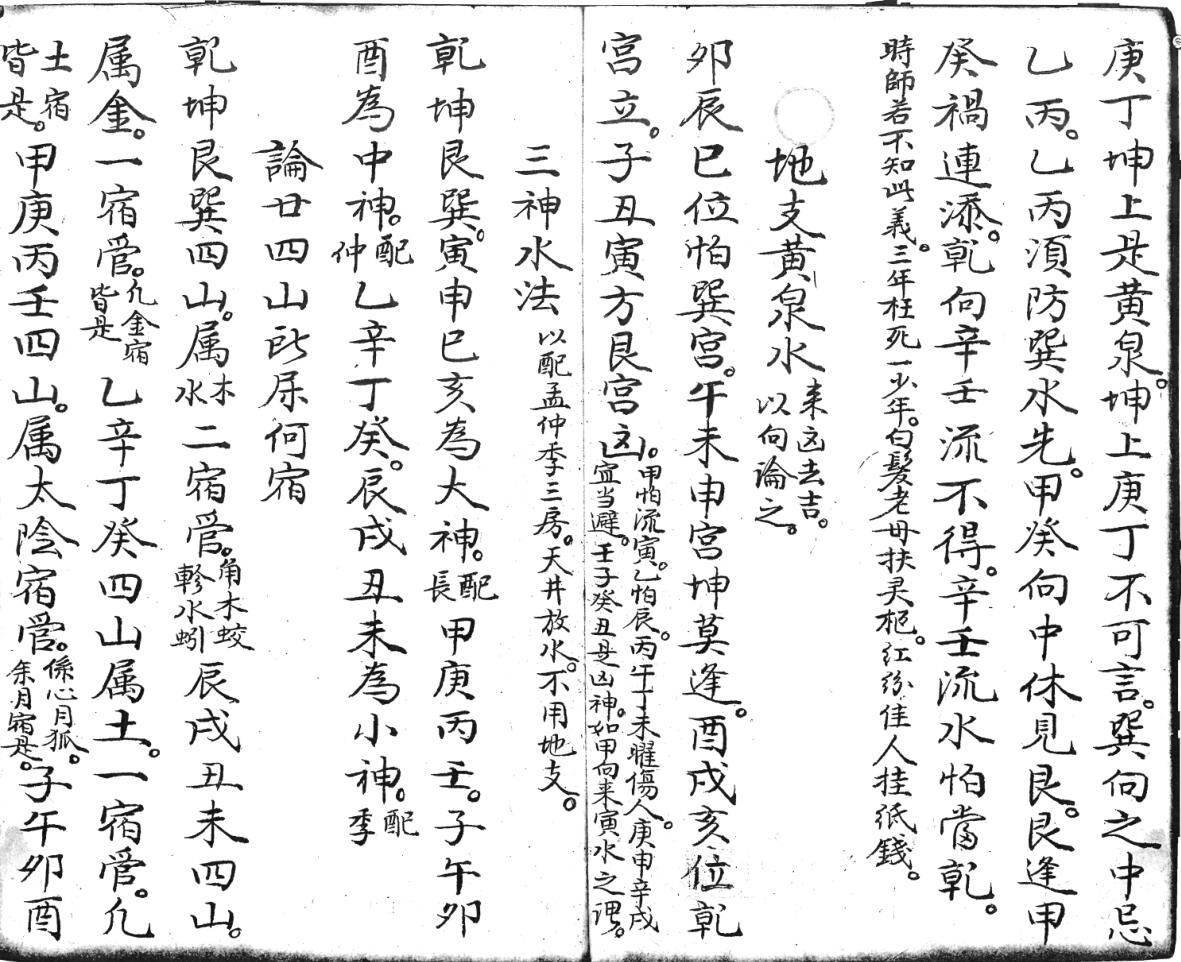 庚丁坤上是黄泉。坤上庚丁不可言。巽向之中忌
乙丙。乙丙須防巽水先。甲癸向中休見艮。艮逢甲
癸禍連添。乾向辛壬流不得。辛壬流水怕當乾。
時師若不知此義。三年枉死一少年。白髮老母扶灵柩。红粉佳人挂纸錢。
地支黄泉水 来凶去吉。以向論之。
卯辰巳位怕巽宮。午未申宮坤莫逢。酉戌亥位乾
宮立。子丑寅方艮宮凶。甲怕流寅。乙怕辰。丙午丁未曜傷人。庚申辛戌宜当避。壬子癸丑是凶神。如甲向来寅水之谓。
三神水法 以配孟仲季三房。天井放水。不用地支。
乾坤艮巽。寅申巳亥為大神。配長 甲庚丙壬。子午卯
酉為中神。配仲 乙辛丁癸。辰戌丑未為小神。配季
論廿四山所属何宿
乾坤艮巽四山。属木水二宿管。角木蛟軫水蚓 辰戌丑未四山。
属金。一宿管。凡金宿皆是 乙辛丁癸四山属土。一宿管。凡
土宿皆是。甲庚丙壬四山。属太陰宿管。係心月狐。余月宿是。子午卯酉